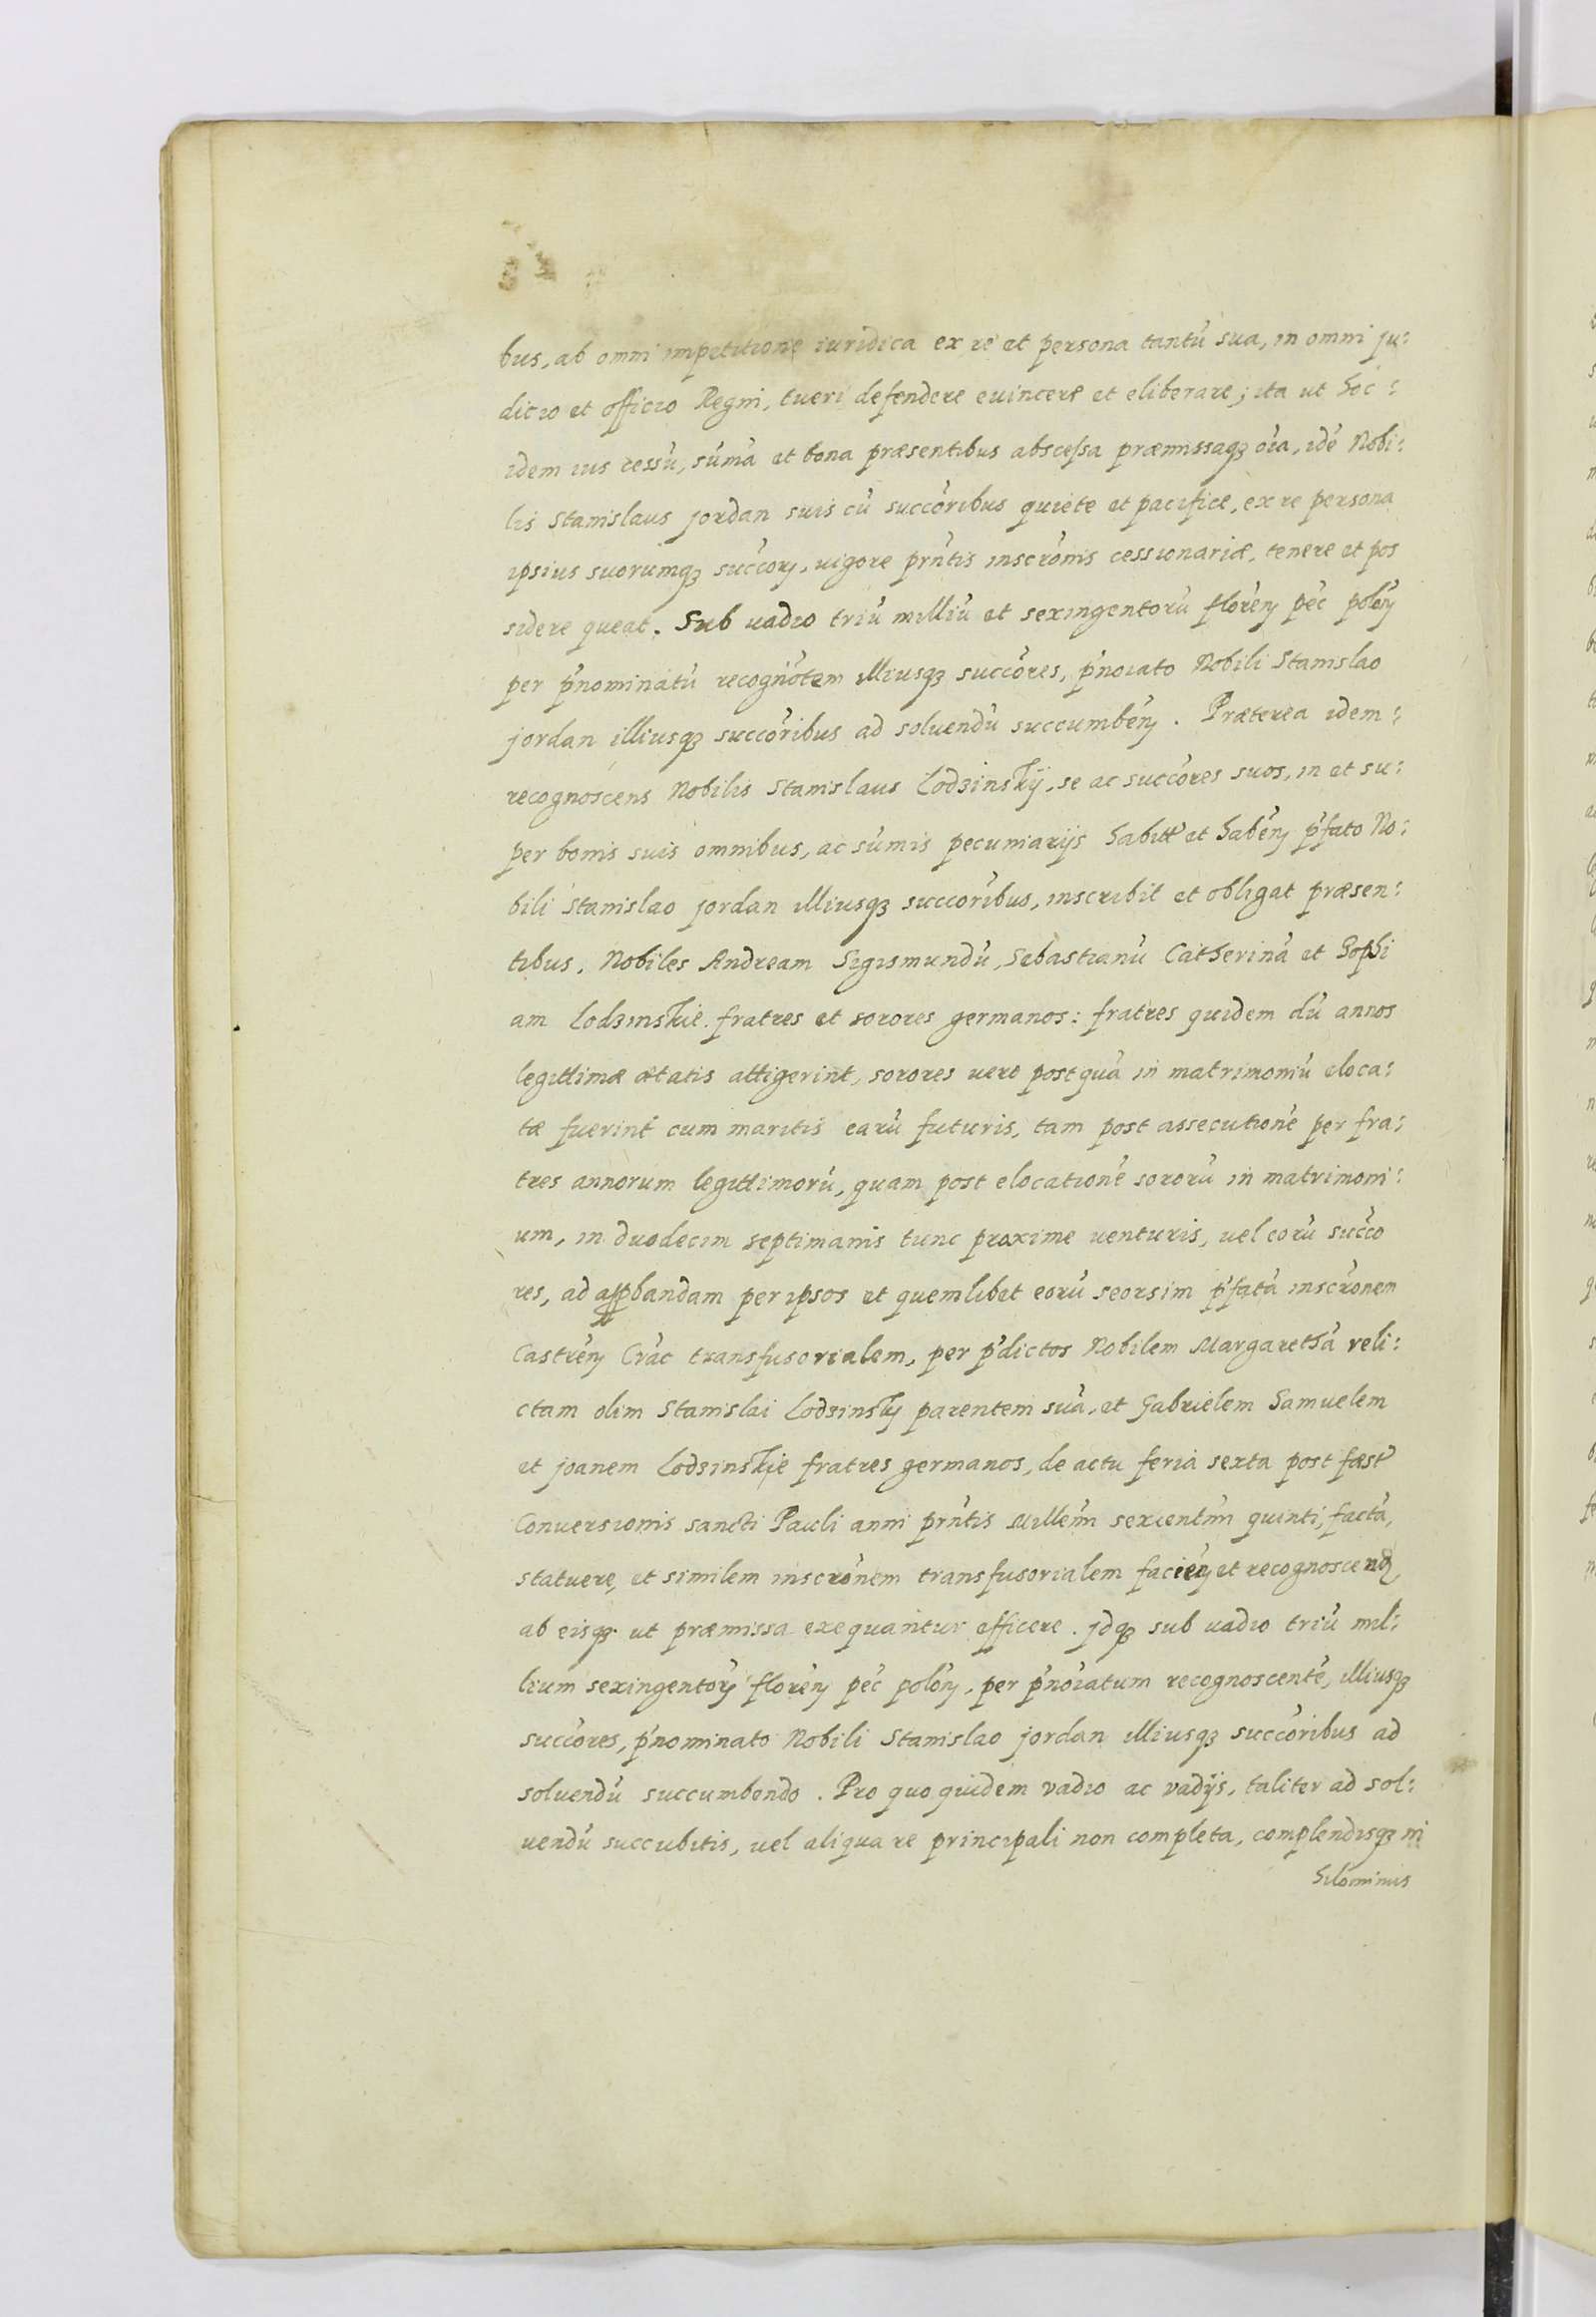 bus, ab omni impetitione iuridica ex re et persona tantū sua, in omni ju:
dicio et officio Regni, tueri defendere euincere et eliberare; ita ut hoc:
idem ius cessū, sūmā et bona præsentibus abscessa præmissaqꝫ oīa, idē Nobi:
lis Stanislaus Jordan suis cū succōribus quiete et pacifice, ex re persona
ipsius suorumqꝫ succorꝫ, uigore prn̄tis inscrōnis cessionariæ, tenere et pos
sidere queat. Sub uadio triū milliū et sexingentorū florēnꝫ pēc polōnꝫ
per p̄nominatū recognōtem illiusqꝫ succōres, p̄noīato Nobili Stanislao
Jordan illiusqꝫ succōribus ad soluendū succumbēnꝫ. Præterea idem:
recognoscens Nobilis Stanislaus Lodzinskÿ, se ac succōres suos, in et su:
per bonis suis omnibus, ac sūmis pecuniarÿs habitꝭ et habēnꝫ p̄fato No:
bili Stanislao Jordan illiusqꝫ succōribus, inscribit et obligat præsen:
tibus, Nobiles Andream Sigismundū, Sebastianū Catherinā et Sophi
am Lodzinskie fratres et sorores germanos: fratres quidem dū annos
legittimæ ætatis attigerint, sorores uero postquā in matrimoniū eloca:
tæ fuerint cum maritis earū futuris, tam post assecutionē per fra:
tres annorum legittimorū, quam post elocationē sororū in matrimoni:
um, in duodecim septimanis tunc proxime uenturis, uel eorū succo
res, ad apꝓbandam per ipsos et quemlibet eorū seorsim p̄fatā inscrōnem
Castrēnꝫ Crāc transfusorialem, per p̄dictos Nobilem Margarethā reli:
ctam olim Stanislai Lodzinskÿ parentem suā, et Gabrielem Samuelem
et Joanem Lodzinskie fratres germanos, de actu feria sexta post fæstꝭ
Conuersionis sancti Pauli anni prn̄tis Millēīm sexcentīm quinti, factā,
statuere, et similem inscrōnem transfusorialem faciēnꝫ et recognoscend,
ab eisqꝫ ut præmissa exequantur efficere. Jdqꝫ sub uadio triū mil:
lium sexingentorꝫ florēnꝫ pēc polōnꝫ, per p̄noīatum recognoscentē, illiusqꝫ
succōres, p̄nominato Nobili Stanislao Jordan illiusqꝫ succōribus ad
soluendū succumbendo. Pro quo quidem vadio ac vadÿs, taliter ad sol:
uendū succubitis, uel aliqua re principali non completa, complendisqꝫ ni
hilominus